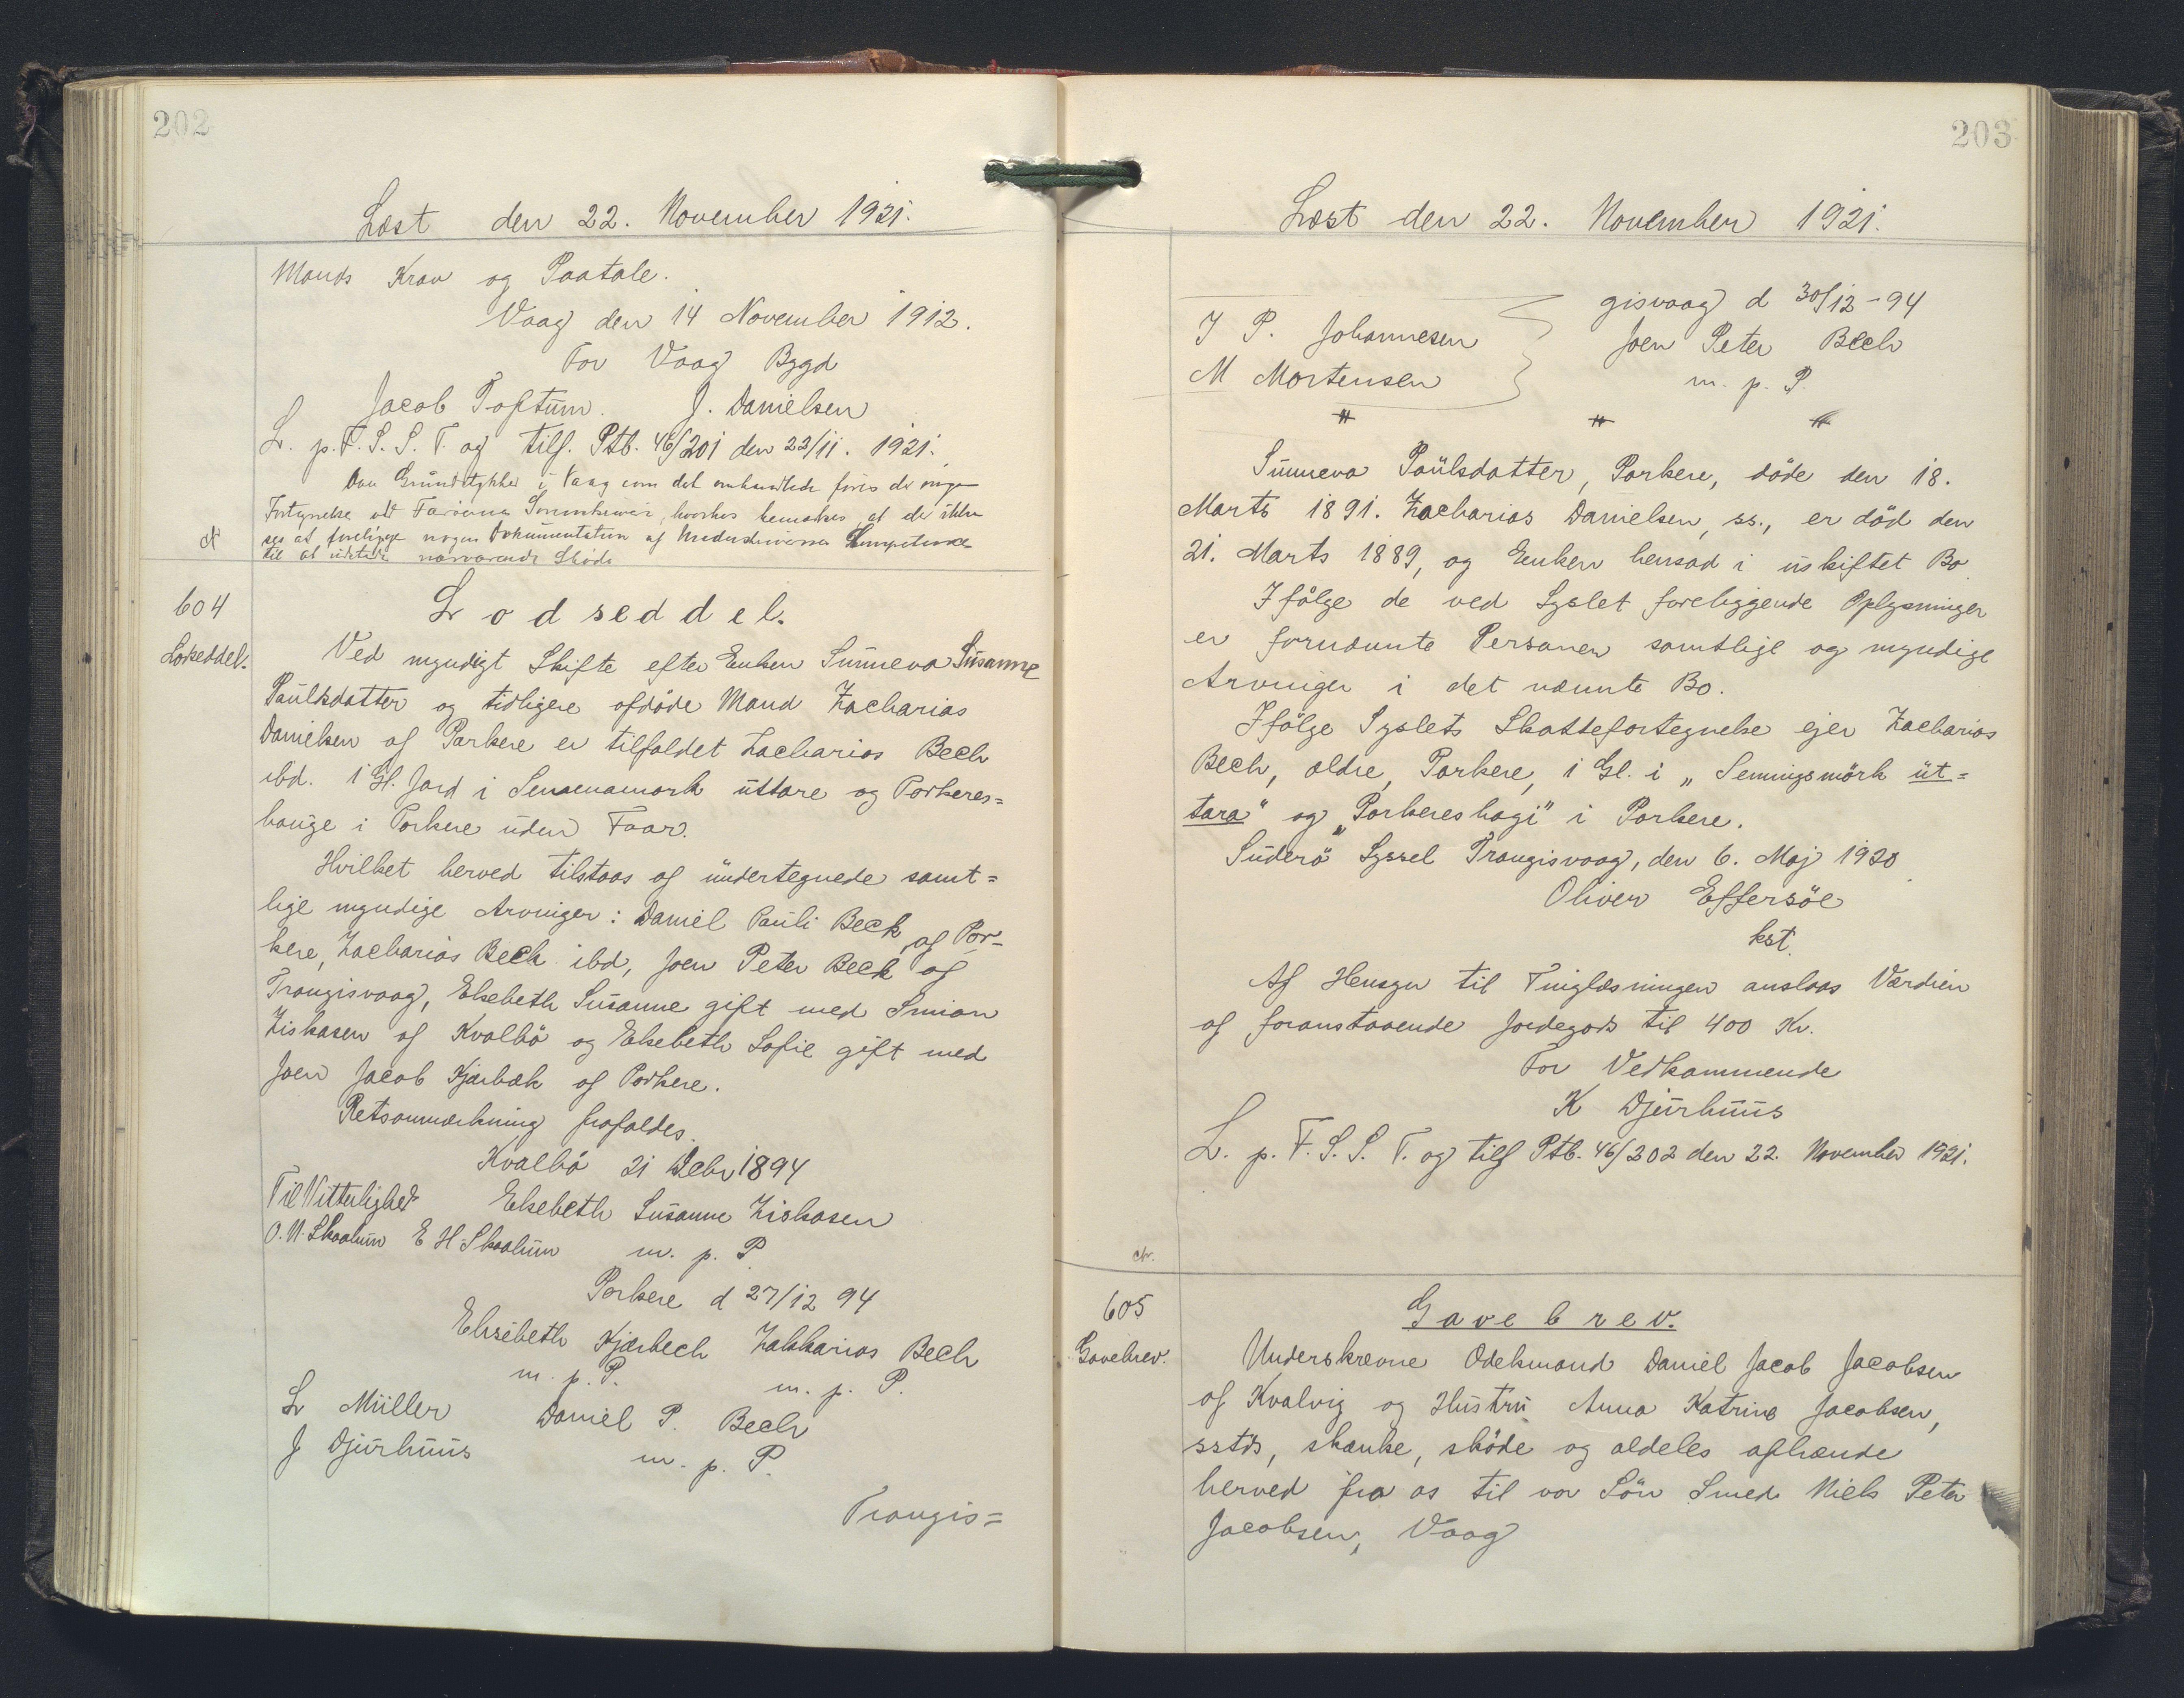 202
Læst den 22. November 1921.
Mands Krav og Paatale.
Vaag den 14 November 1912.
For Vaag Bygd
Jacob Toftum. J. Danielsen
L. p. F. S. S. T. og tilf. Ptb. 46/201 den 22/11. 1921.
Om Grundstykker i Vaag som det omhandlede føres der ingen
Fortegnelse ved Færøerne Sorenskriveri, hvorhos bemærkes, at der ikke
ses at foreligge nogen Dokumentation af Underskrivernes Kompetence
til at udstede nærværende Skøde
604
Lodseddel.
Lodseddel.
Ved myndigt Skifte efter Enken Sunneva Susanne
Paulsdatter og tidligere afdøde Mand Zacharias
Danielsen af Porkere er tilfaldet Zacharias Bech
ibd. 1 Gl. Jord i Sennenamork uttare og Porkeres=
hauge i Porkere uden Faar.
Hvilket herved tilstaas af undertegnede samt=
lige myndige Arvinger: Daniel Pauli Beck af Por=
kere, Zacharias Bech ibd, Joen Peter Beck af
Trangisvaag, Elsebeth Susanne gift med Simon
Ziskasen af Kvalbø og Elsebeth Sofie gift med
Joen Jacob Kjærbæk af Porkere.
Retsanmærkning frafaldes.
Kvalbø 21 Debr 1894
Til Vitterlighed Elsebeth Susanne Ziskasen
O. N. Skaalum E H Skaalum m. p. P
Porkere d 27/12 94
Elsebeth Kjærbech Zakkarias Bech
m. p. P. m. p. P.
L Müller Daniel P. Bech
J Djurhuus m. p. P.
Trangis=
203
Læst den 22. November 1921.
gisvaag d 30/12-94
J P. Johannesen Joen Peter Bech
M Mortensen m. p. P.
" " "
Sunneva Paulsdatter, Porkere, døde den 18.
Marts 1891. Zacharias Danielsen, ss., er død den
21. Marts 1889, og Enken hensad i uskiftet Bo
Ifølge de ved Syslet foreliggende Oplysninger
er fornævnte Personer samtlige og myndige
Arvinger i det nævnte Bo.
Ifølge Syslets Skattefortegnelse ejer Zacharias
Bech, ældre, Porkere, 1 Gl. i „Senningsmörk út=
tara" og „Porkereshagi" i Porkere.
Suderø Syssel Trangisvaag, den 6. Maj 1920
Oliver Effersöe
kst.
Af Hensyn til Tinglæsningen anslaas Værdien
af foranstaaende Jordegods til 400 Kr.
For Vedkommende
K Djurhuus
L. p. F. S. S. T. og tilf Ptb. 46/202 den 22. November 1921.
605
Gavebrev.
Gavebrev.
Underskrevne Odelsmand Daniel Jacob Jacobsen
af Kvalvig og Hustru Anna Katrine Jacobsen,
sstds, skænke, skøde og aldeles afhænde
herved fra os til vor Søn Smed Niels Peter
Jacobsen, Vaag